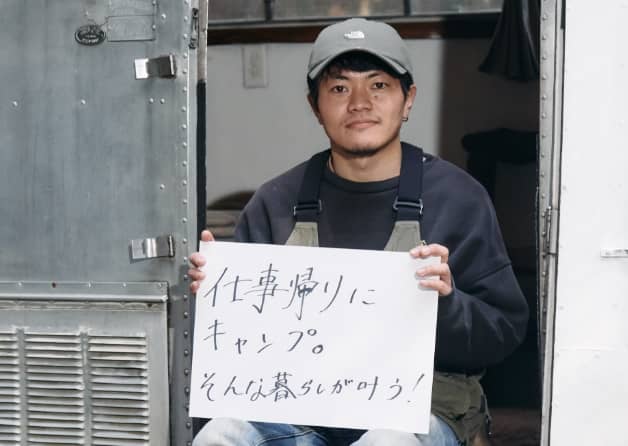 仕事帰りに
キャンプ。
そんな暮らしが叶う!